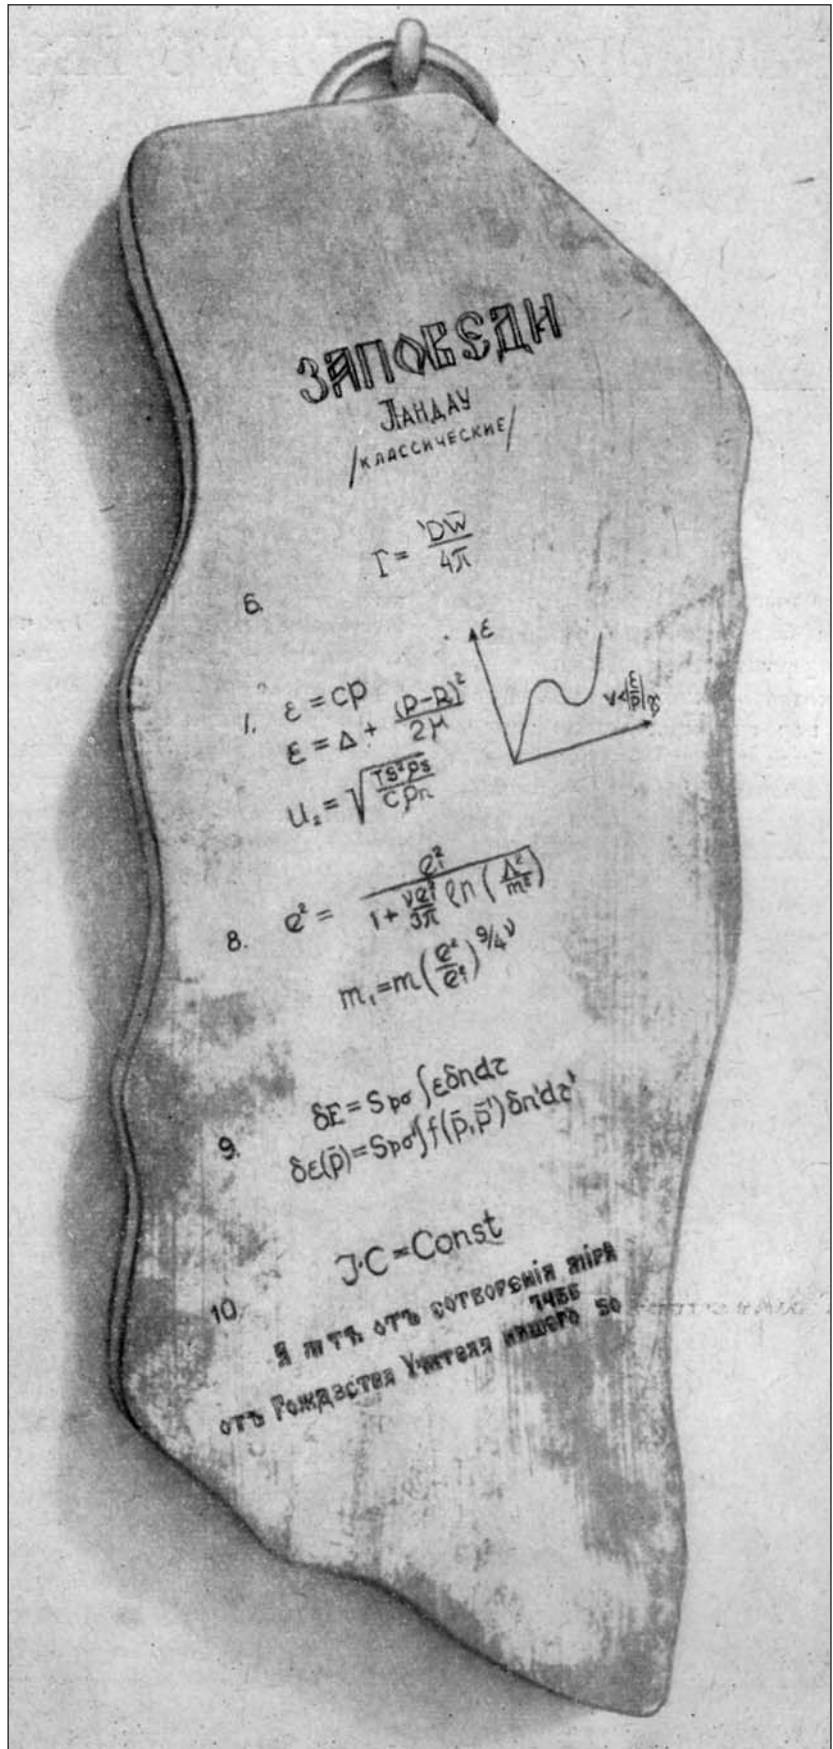 ЗАПОВЕДИ
ЛАНДАУ
/КЛАССИЧЕСКИЕ/
6. Γ = DW̄/4π
ε
v<|ε/p|
7. ε = cp
ε = Δ + (p-p₀)²/2μ
u₂ = √(TS²ρs/Cρn)
8. e² = e₁²/(1 + (νe₁²/3π) ln(Λ²/m²))
m₁ = m(e²/e₁²)^(9/4ν)
9. δE = Spσ ∫ εδndτ
δε(p̄) = Spσ' ∫ f(p̄, p̄')δn'dτ'
10. J·C = Const
отъ сотворенія міра
отъ Рождества Учителя нашего 50